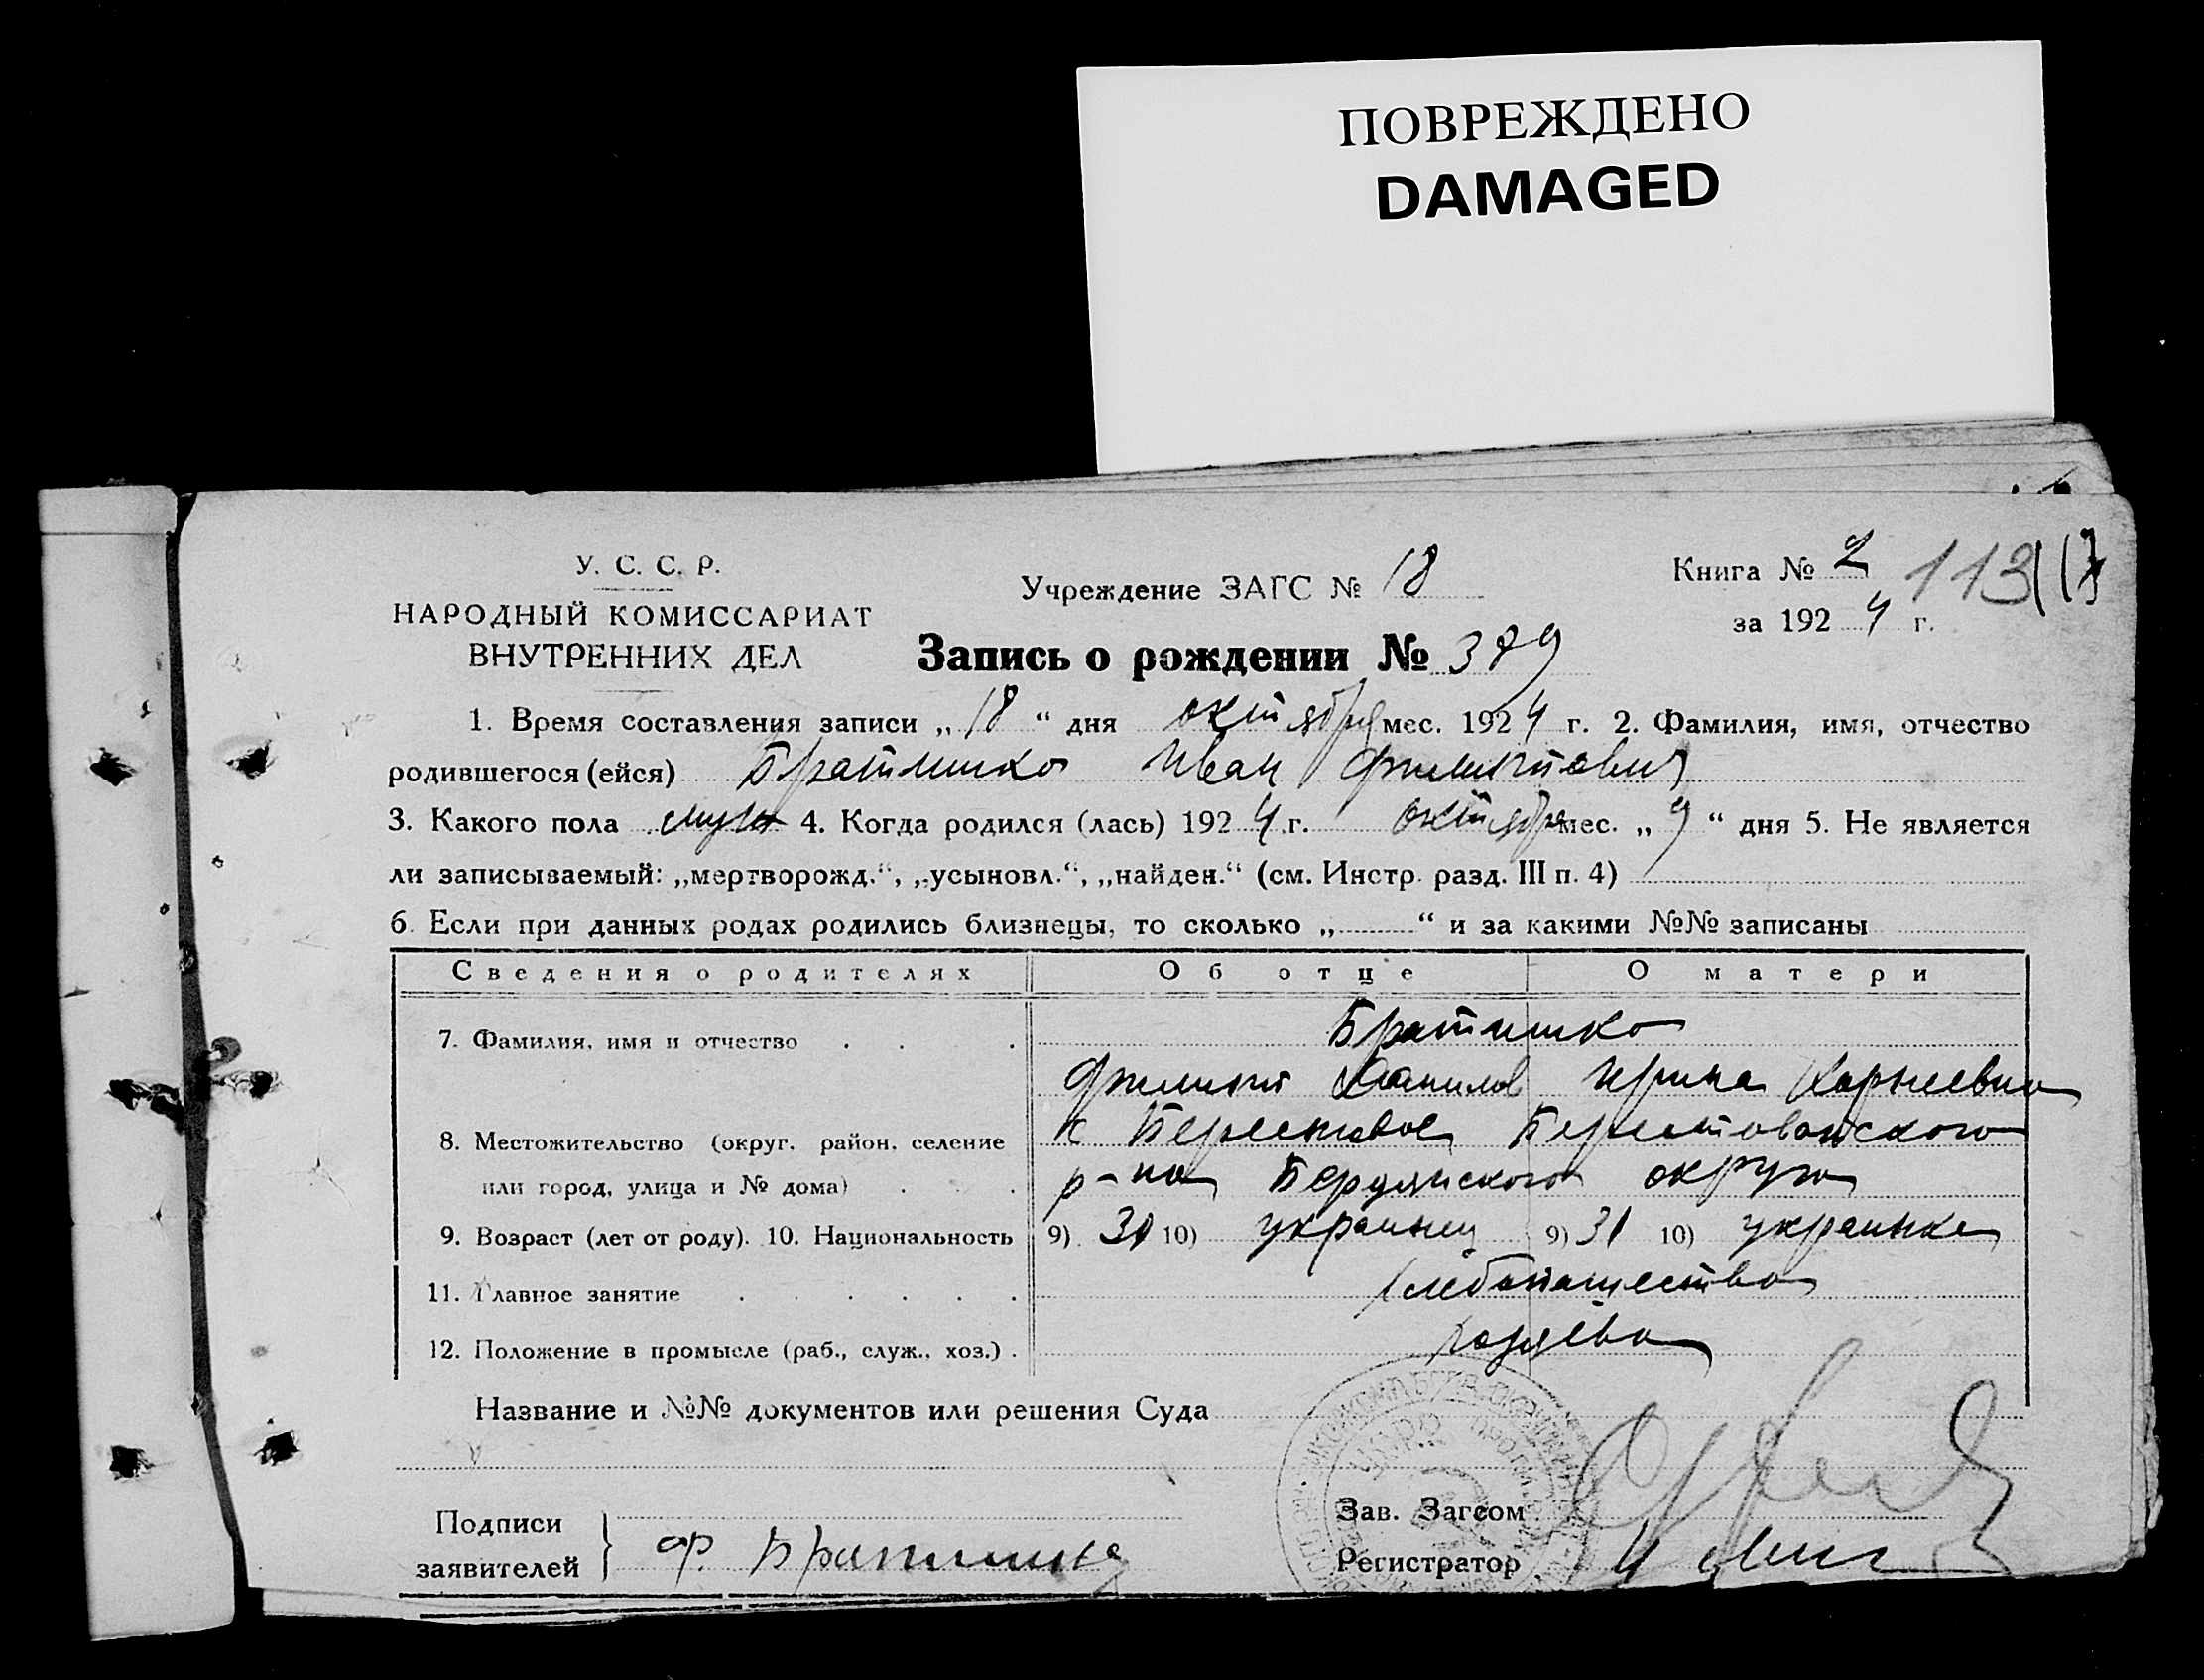 ПОВРЕЖДЕНО
DAMAGED
У. С. С. Р.
НАРОДНЫЙ КОМИССАРИАТ
ВНУТРЕННИХ ДЕЛ
Учреждение ЗАГС № 18
Книга № 2 113
за 192 4 г.
Запись о рождении № 379
1. Время составления записи „18“ дня октября мес. 1924 г. 2. Фамилия, имя, отчество
родившегося (ейся) Братишко Иван Филиппович
3. Какого пола муж 4. Когда родился (лась) 192 4 г. октября мес. „9“ дня 5. Не является
ли записываемый: „мертворожд.“, „усыновл.“, „найден.“ (см. Инстр. разд. III п. 4)
6. Если при данных родах родились близнецы, то сколько „ “ и за какими №№ записаны
Сведения о родителях Об отце О матери
7. Фамилия, имя и отчество Братишко
Филипп Данилов Ирина Карнеевна
8. Местожительство (округ, район, селение с Берестовое Берестованского
или город, улица и № дома) р-на Бердянского округа
9. Возраст (лет от роду). 10. Национальность 9) 31 10) украинец 9) 31 10) украинка
11. Главное занятие хлебопашество
12. Положение в промысле (раб., служ., хоз.) хозяева
Название и №№ документов или решения Суда
Подписи
заявителей Ф. Братишко
Зав. Загсом
Регистратор